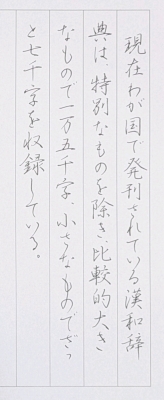 現在わが国で発刊されている漢和辞
典は、特別なものを除き、比較的大き
なもので一万五千字、小さなものでざっ
と七千字を収録している。